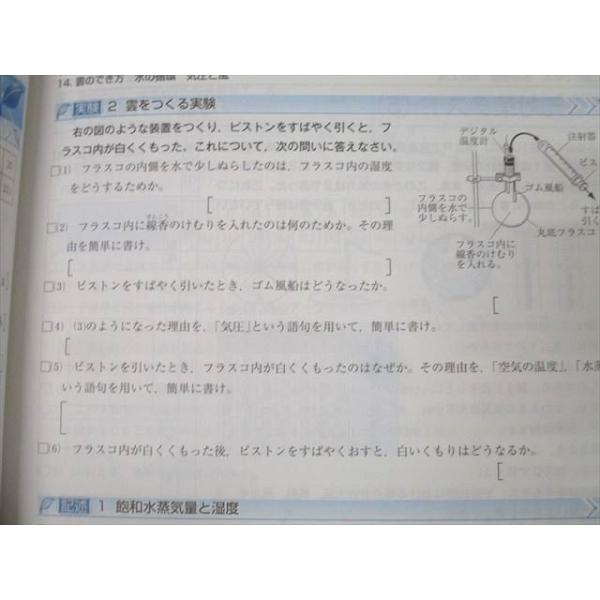 14. 雲のでき方 水の循環 気圧と風
実験 2 雲をつくる実験
右の図のような装置をつくり，ピストンをすばやく引くと，フ
ラスコ内が白くくもった。これについて，次の問いに答えなさい。
□(1) フラスコの内側を水で少しぬらしたのは，フラスコ内の湿度
をどうするためか。
[ ]
□(2) フラスコ内に線香のけむりを入れたのは何のためか。その理
せんこう
由を簡単に書け。
[ ]
□(3) ピストンをすばやく引いたとき，ゴム風船はどうなったか。
[
□(4) (3)のようになった理由を，「気圧」という語句を用いて，簡単に書け。
[
□(5) ピストンを引いたとき，フラスコ内が白くくもったのはなぜか。その理由を，「空気の温度」，「水蒸
いう語句を用いて，簡単に書け。
[
□(6) フラスコ内が白くくもった後，ピストンをすばやくおすと，白いくもりはどうなるか。
[
記述 1 飽和水蒸気量と湿度
デジタル
温度計
注射器
ピス
ゴム風船
フラスコの
内側を水で
少しぬらす。
すば
引く
丸底フラスコ
フラスコ内に
線香のけむり
を入れる。